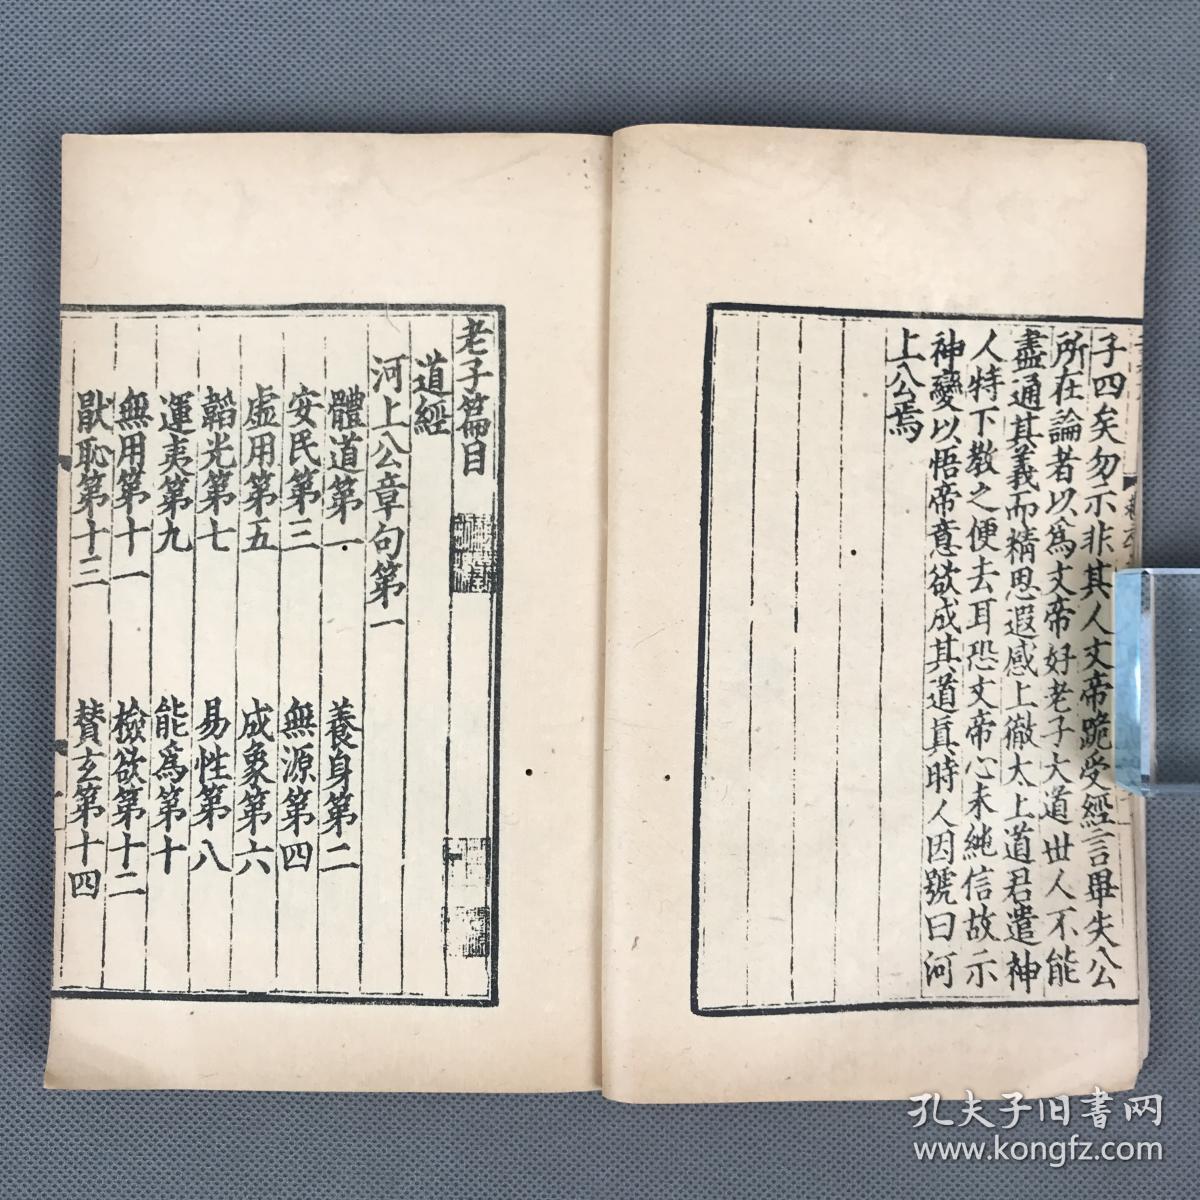 子四矣勿示非其人文帝跪受經言畢失公
所在論者以為文帝好老子大道世人不能
盡通其義而精思遐感上徹太上道君遣神
人特下教之便去耳恐文帝心未純信故示
神變以悟帝意欲成其道真時人因號曰河
上公焉
老子篇目
道經
河上公章句第一
體道第一 養身第二
安民第三 無源第四
虛用第五 成象第六
韜光第七 易性第八
運夷第九 能為第十
無用第十一 檢欲第十二
猒恥第十三 贊玄第十四
孔夫子旧書网
www.kongfz.com